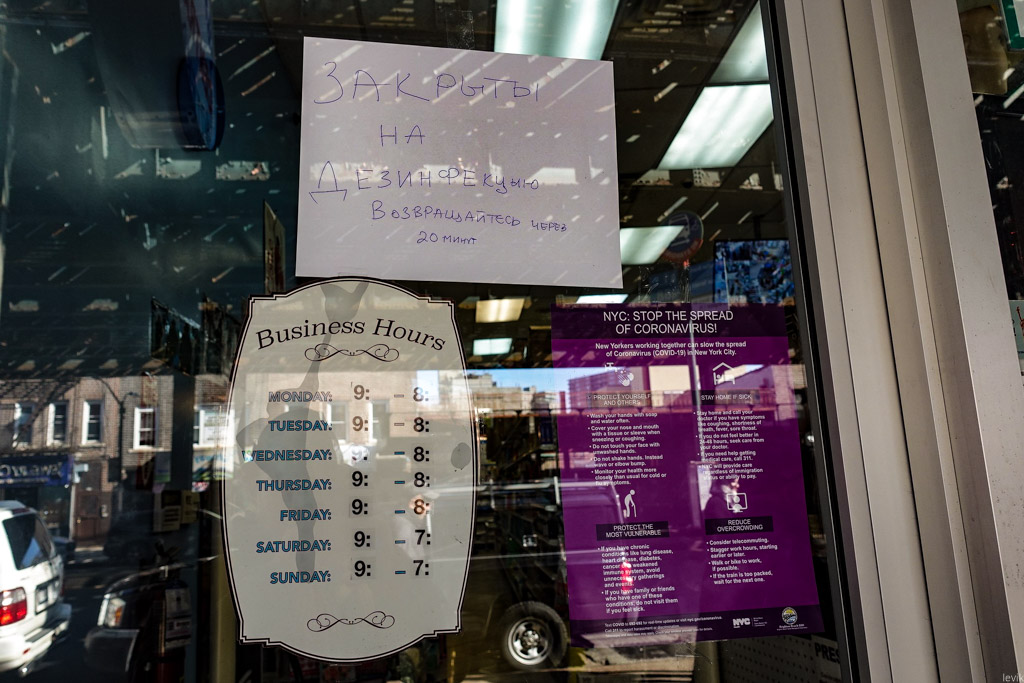 ЗАКРЫТЫ
НА
ДЕЗИНФЕКЦЫЮ
ВОЗВРАЩАЙТЕСЬ ЧЕРЕЗ
20 МИНУТ
Business Hours
MONDAY: 9: – 8:
TUESDAY: 9: – 8:
WEDNESDAY: 9: – 8:
THURSDAY: 9: – 8:
FRIDAY: 9: – 8:
SATURDAY: 9: – 7:
SUNDAY: 9: – 7:
NYC: STOP THE SPREAD
OF CORONAVIRUS!
New Yorkers working together can slow the spread
of Coronavirus (COVID-19) in New York City.
PROTECT YOURSELF
AND OTHERS
• Wash your hands with soap
and water often.
• Cover your nose and mouth
with a tissue or sleeve when
sneezing or coughing.
• Do not touch your face with
unwashed hands.
• Do not shake hands. Instead
wave or elbow bump.
• Monitor your health more
closely than usual for cold or
flu symptoms.
STAY HOME IF SICK
• Stay home and call your
doctor if you have symptoms
like coughing, shortness of
breath, fever, sore throat.
• If you do not feel better in
24-48 hours, seek care from
your doctor.
• If you need help getting
medical care, call 311.
• NYC will provide care
regardless of immigration
status or ability to pay.
PROTECT THE
MOST VULNERABLE
• If you have chronic
conditions like lung disease,
heart disease, diabetes,
cancer or weakened
immune system, avoid
unnecessary gatherings
and events.
• If you have family or friends
who have one of these
conditions, do not visit them
if you feel sick.
REDUCE
OVERCROWDING
• Consider telecommuting.
• Stagger work hours, starting
earlier or later.
• Walk or bike to work,
if possible.
• If the train is too packed,
wait for the next one.
NYC
levik